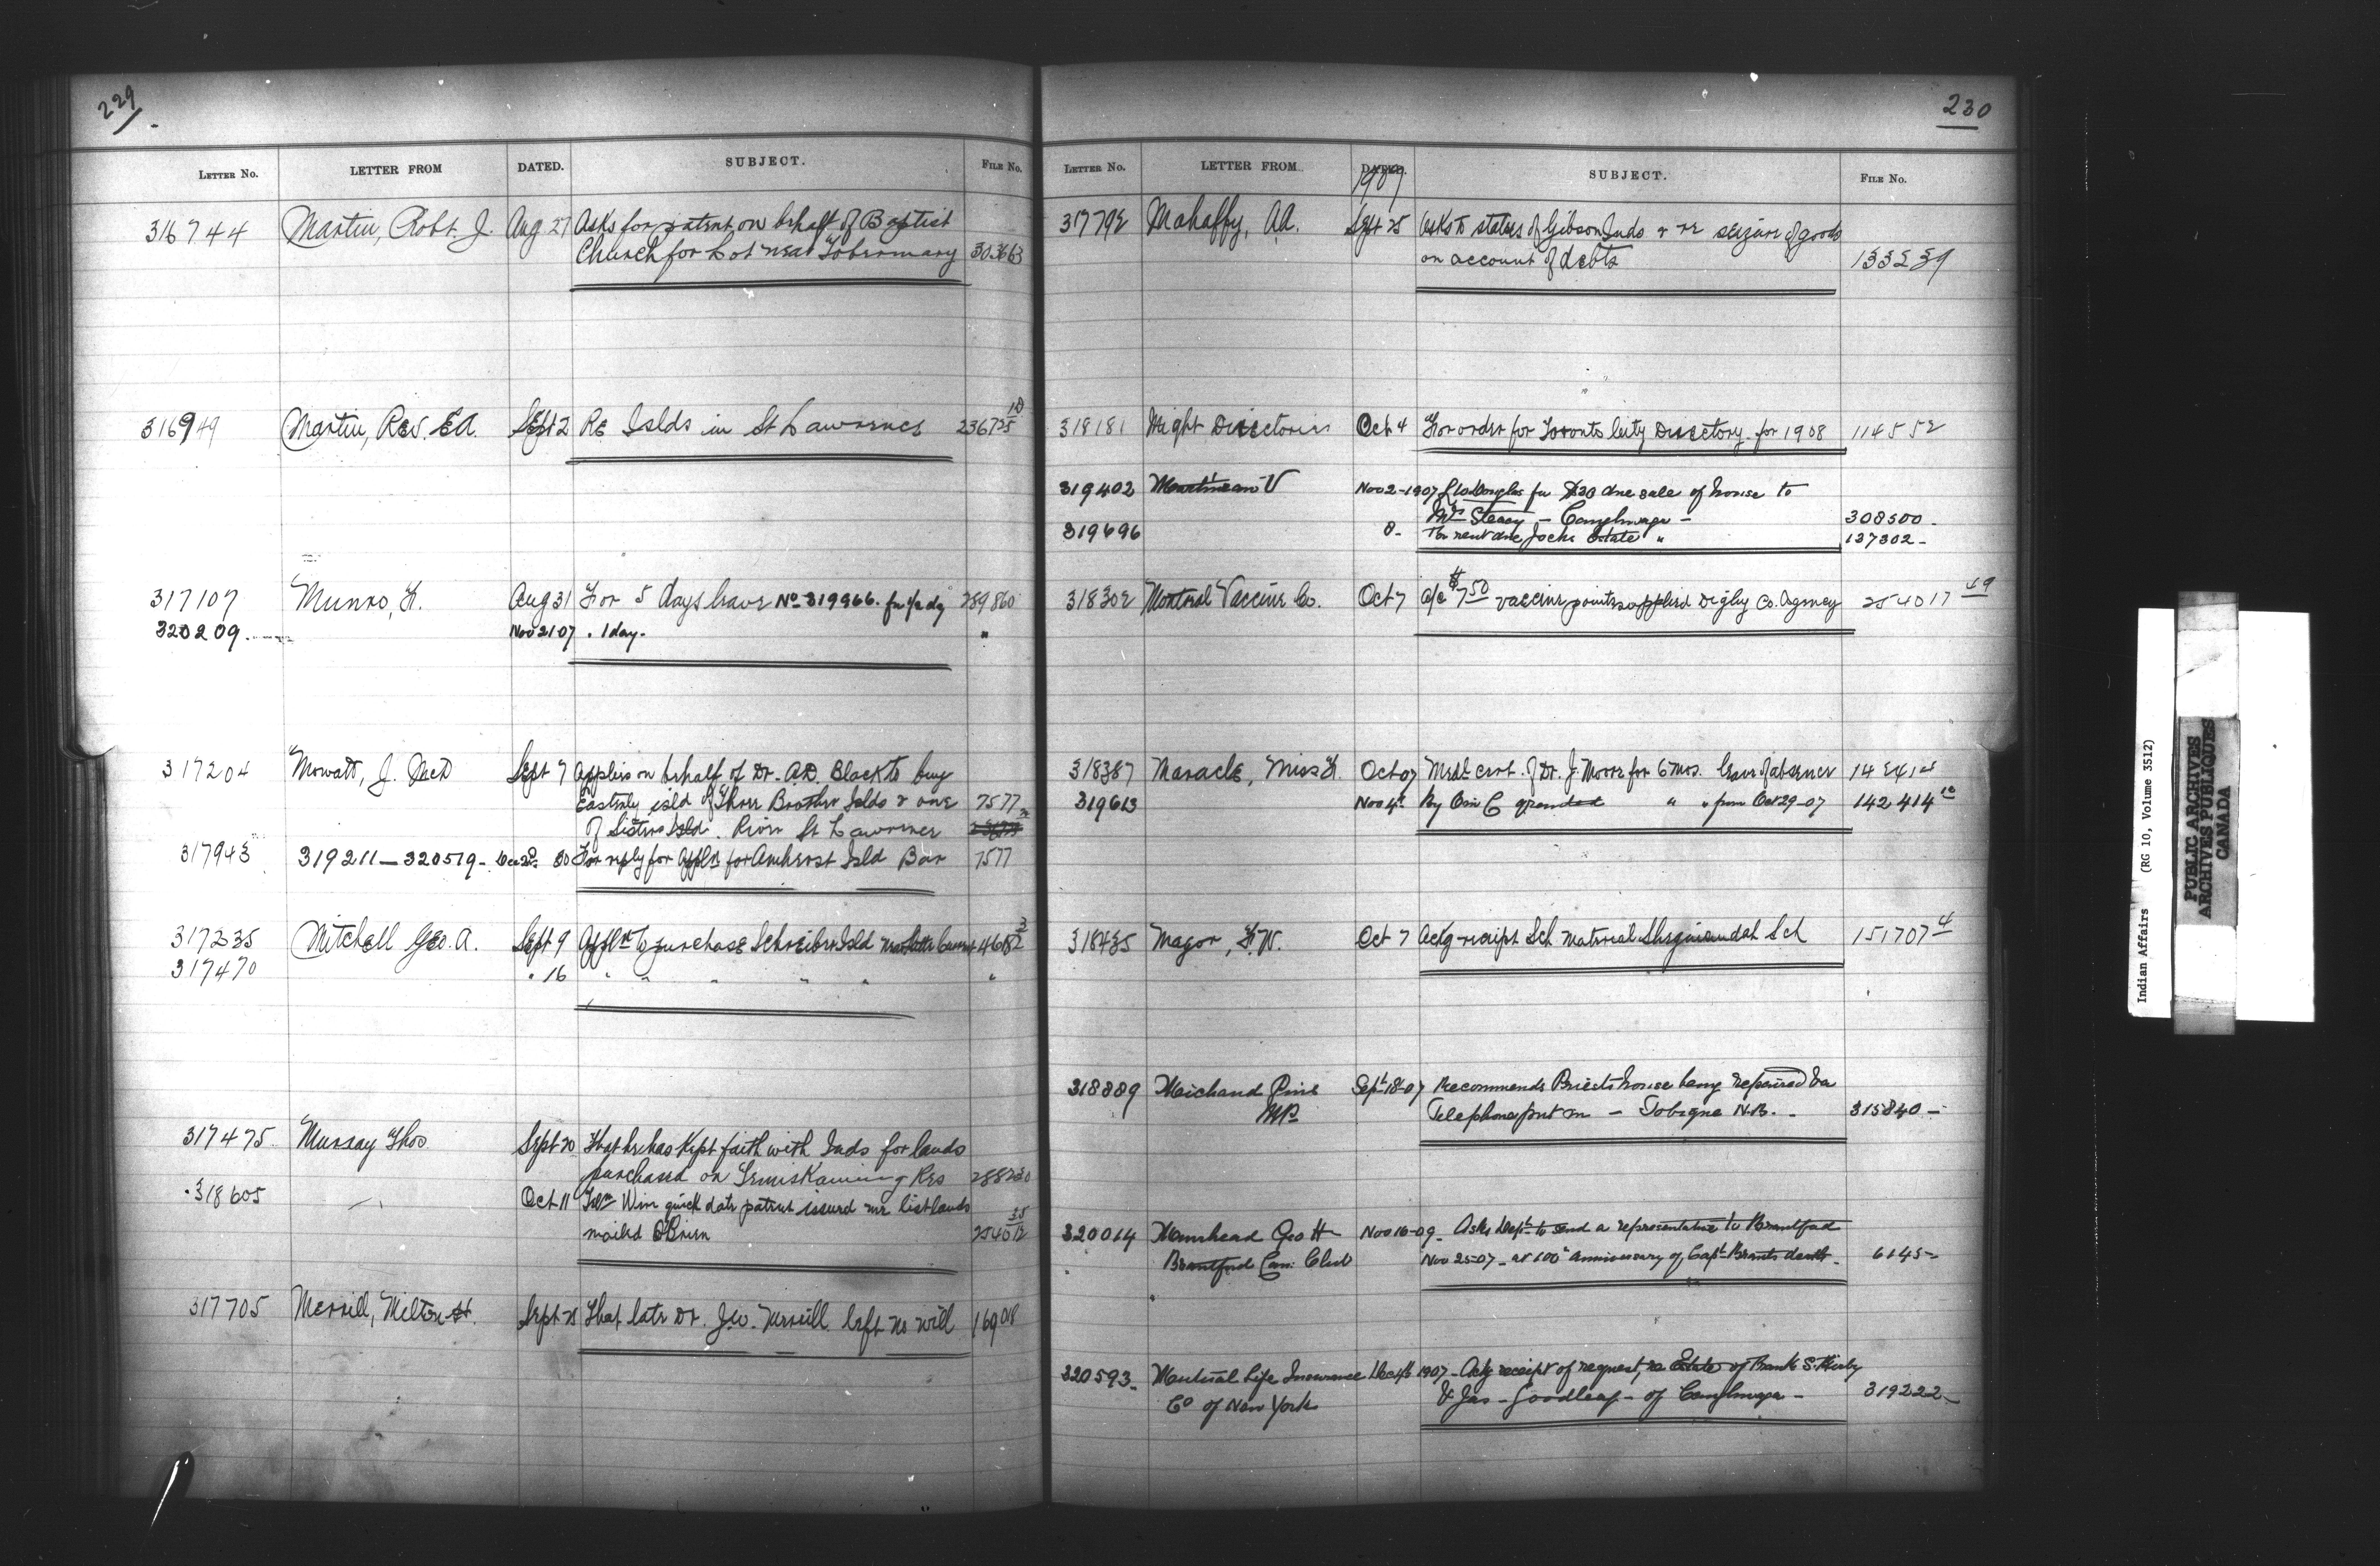 229
LETTER NO. LETTER FROM DATED. SUBJECT. FILE NO.
316744 Martin, Robt. J. Aug 27 Asks for patent on behalf of Baptist
Church for Lot near Tobermory 303663
316949 Martin, Rev. E.A. Sept 2 Re Islds in St Lawrence 236725
317107 Munro, H. Aug 31 For 5 days leave No 319966. for 1/2 dy 289860
320209. Nov 21 07 . 1 day. "
317204 Mowatt, J. McD Sept 7 Applies on behalf of Dr. A.D. Black to buy
Easterly isld of Three Brother Islds & one 7577
of Sisters Isld. River St Lawrence
317943 319211 — 320519 - 30 For reply for appln for Amherst Isld Bar 7577
317235 Mitchell Geo. A. Sept 9 Appln to purchase Schreiber Isld 3
317470 " 16 " " " " " "
317475 Murray Thos Sept 20 That he has kept faith with Inds for lands
purchased on Temiskaming Res 288230
318605 Oct 11 Win quick date patent issued me list lands
mailed O'Brien
317705 Merrill, Milton H. Sept 25 That late Dr. J.W. Merrill left no will
230
LETTER NO. LETTER FROM DATED. SUBJECT. FILE NO.
1907
317792 Mahaffy, A.A. Sept 25 Asks to status of Gibson Inds & re seizure of goods
on account of debts 133239
318181 Might Directories Oct 4 For order for Toronto City Directory for 1908 114552
319402 Nov 2-1907 for $20 due sale of house to
Mrs Steacy - Caughnawaga - 308500 -
319696 8 - For rent due Jocks Estate " 137302 -
318302 Montreal Vaccine Co. Oct 7 a/c $7.50 vaccine points supplied Digby Co. Agency 254017 49
318387 Maracle, Miss H. Oct 07 Medl cert. of Dr. J. Moore for 6 mos. leave of absence 142414
319613 Nov 4th By O in C granted " " from Oct 29-07 142414 12
318435 Major, F.W. Oct 7 Ackg receipt Sch material Shegiandah Sch 151707 4
318889 Michaud Pius Sept 18-07 Recommends Priests house being repaired &a
MP. Telephone put in - Tobique N.B. - 315840 -
320014 Muirhead Geo H Nov 16-09 - Asks Dept to send a representative to Brantford
Brantford Can: Club Nov 25-07 - at 100th anniversary of Capt Brants death - 6145 -
320593 - Mutual Life Insurance Dec 4th 1907 - Ackg receipt of request, re Estate of Frank S. Kirby
Co of New York & Jas - Goodleaf - of Caughnawaga - 319222 -
Indian Affairs (RG 10, Volume 3512)
PUBLIC ARCHIVES
ARCHIVES PUBLIQUES
CANADA